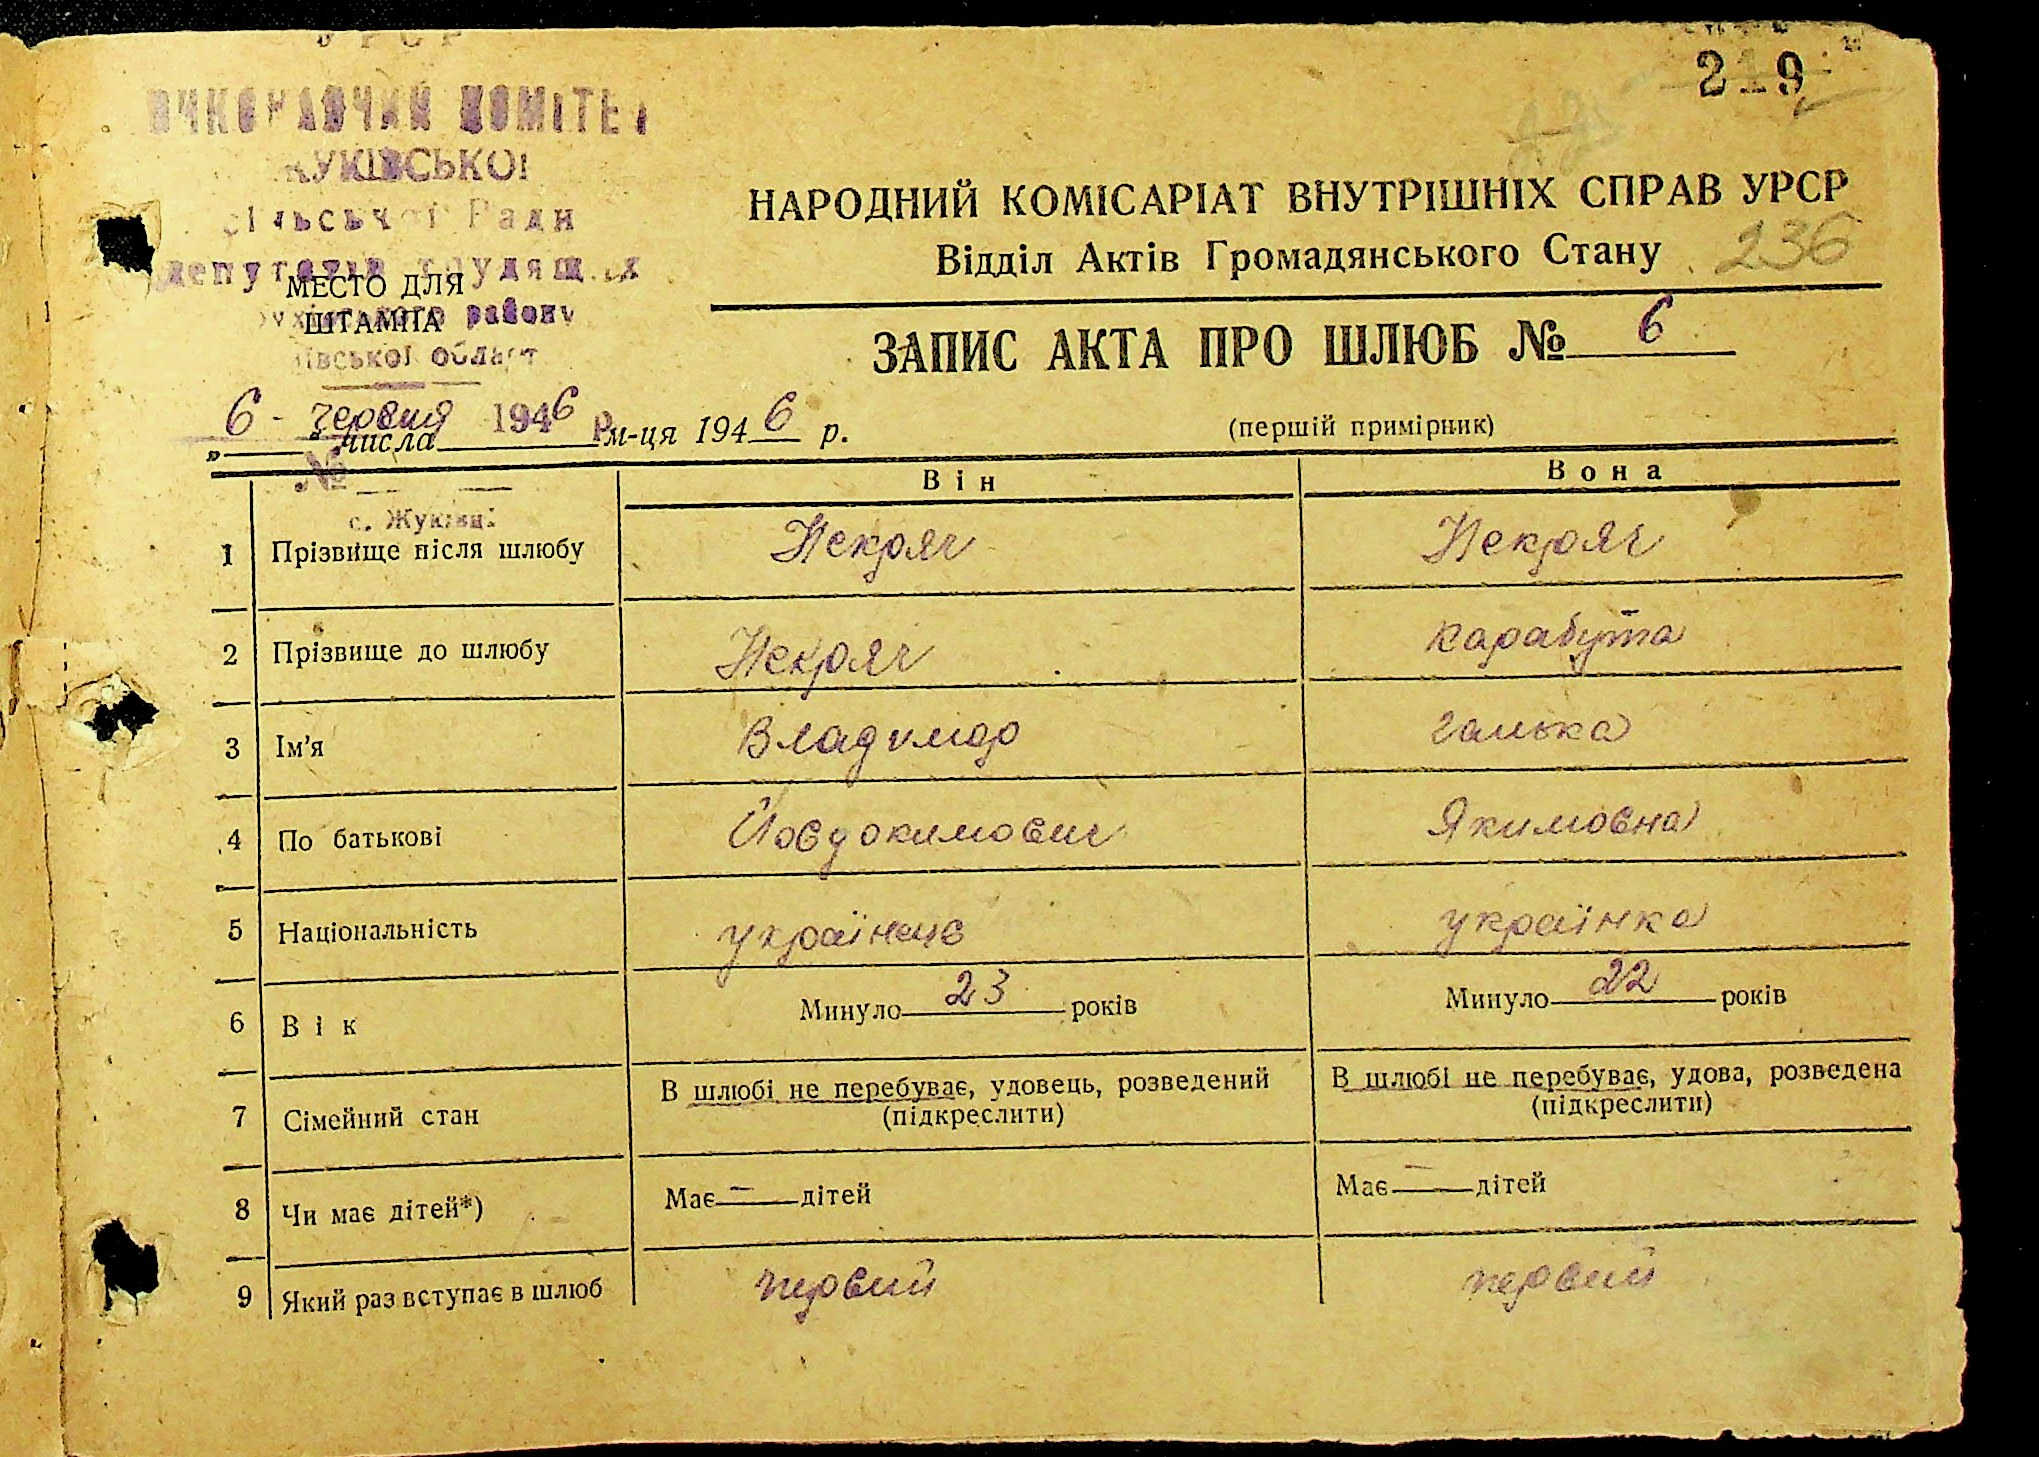 УРСР
ВИКОНАВЧИЙ КОМІТЕТ
ЖУКІВСЬКОЇ
сільської Ради
депутатів трудящих
МЕСТО ДЛЯ
району
ШТАМПА
області
6 - червня 1946 р.
„ числа м-ця 1946 р.
№
с. Жуківці
219
НАРОДНИЙ КОМІСАРІАТ ВНУТРІШНІХ СПРАВ УРСР
Відділ Актів Громадянського Стану 236
ЗАПИС АКТА ПРО ШЛЮБ № 6
(першій примірник)
Він Вона
1 Прізвище після шлюбу Некряч Некряч
2 Прізвище до шлюбу Некряч Карабута
3 Ім'я Владимор Галька
4 По батькові Йовдокимович Якимовна
5 Національність українець українка
6 Вік Минуло 23 років Минуло 22 років
7 Сімейний стан В шлюбі не перебуває, удовець, розведений (підкреслити) В шлюбі не перебуває, удова, розведена (підкреслити)
8 Чи має дітей*) Має — дітей Має — дітей
9 Який раз вступає в шлюб первий первий